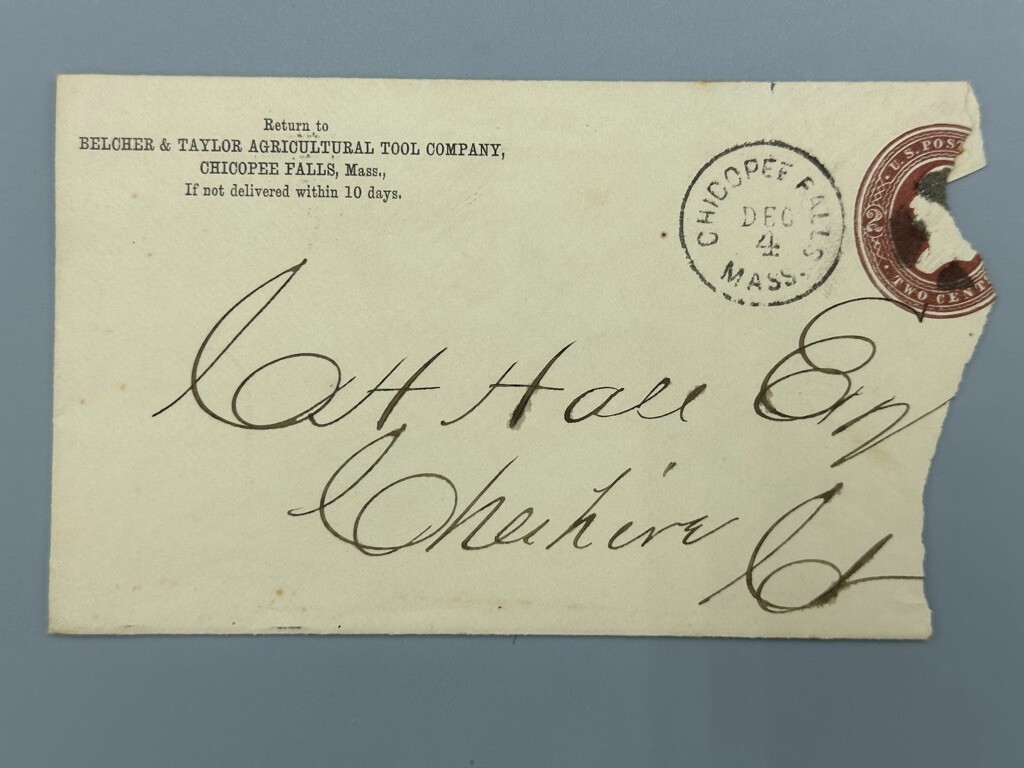 Return to
BELCHER & TAYLOR AGRICULTURAL TOOL COMPANY,
CHICOPEE FALLS, Mass.,
If not delivered within 10 days.
CHICOPEE FALLS
DEC
4
MASS.
U.S. POST
2
TWO CENT
Hall Esq
Cheshire
Ct